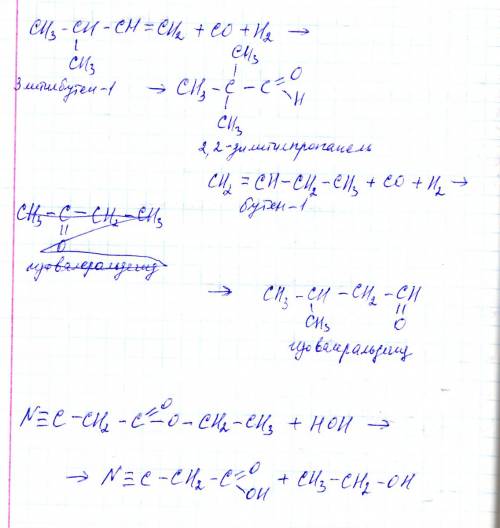 CH₃-CH-CH=CH₂ + CO + H₂ →
CH₃
3 метилбутен-1
CH₃
→ CH₃-C-C=O
H
CH₃
2,2-диметилпропаналь
CH₂=CH-CH₂-CH₃ + CO + H₂ →
бутен-1
CH₃-C-CH₂-CH₃
O
изовалеральдегид
→ CH₃-CH-CH₂-CH
CH₃ O
изовалеральдегид
N≡C-CH₂-C=O-O-CH₂-CH₃ + HOH →
→ N≡C-CH₂-C=O OH + CH₃-CH₂-OH